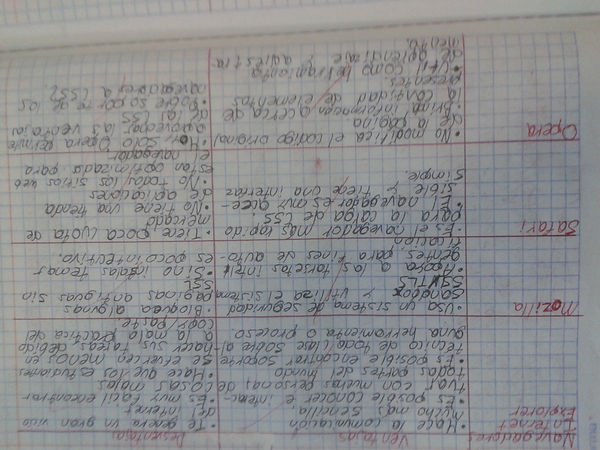 Navegadores
Ventajas
Desventajas
Internet
Explorer
• Hace la comunicación
mucho mas sencilla
• Es posible conocer e interac-
tuar con muchas personas de
todas partes del mundo
• Es posible encontrar soporte
técnico de toda clase sobre al-
guna herramienta o proceso
• Te genera un gran vicio
del internet
• Es muy facil encontrar
cosas malas
• Hace que los estudiantes
se esfuercen menos en
hacer sus tareas, debido
a la mala practica del
copy paste
Mozilla
• Usa un sistema de seguridad
sandbox y utiliza el sistema
SSL/TLS
• Apoya a las tarjetas inteli
gentes para fines de auten-
ticación
• Bloquea algunas
paginas antiguas sin
SSL
• Si no instalas temas
es poco intuitivo.
Safari
• Es el navegador mas rapido
para la carga de CSS.
• El navegador es muy acce-
sible y tiene una interfaz
simple.
• Tiene poca cuota de
mercado
• No tiene una tienda
de aplicaciones
• No todos los sitios web
estan optimizados para
el navegador
Opera
• No modifica el codigo original
de la pagina
• Brinda informacion acerca de
la cantidad de elementos
presentes.
• Util como herramienta
de aprendizaje y adiestra-
miento.
• Solo Opera permite
aprovechar las ventajas
de las CSS
• Sobre soporte de los
navegadores a CSS2